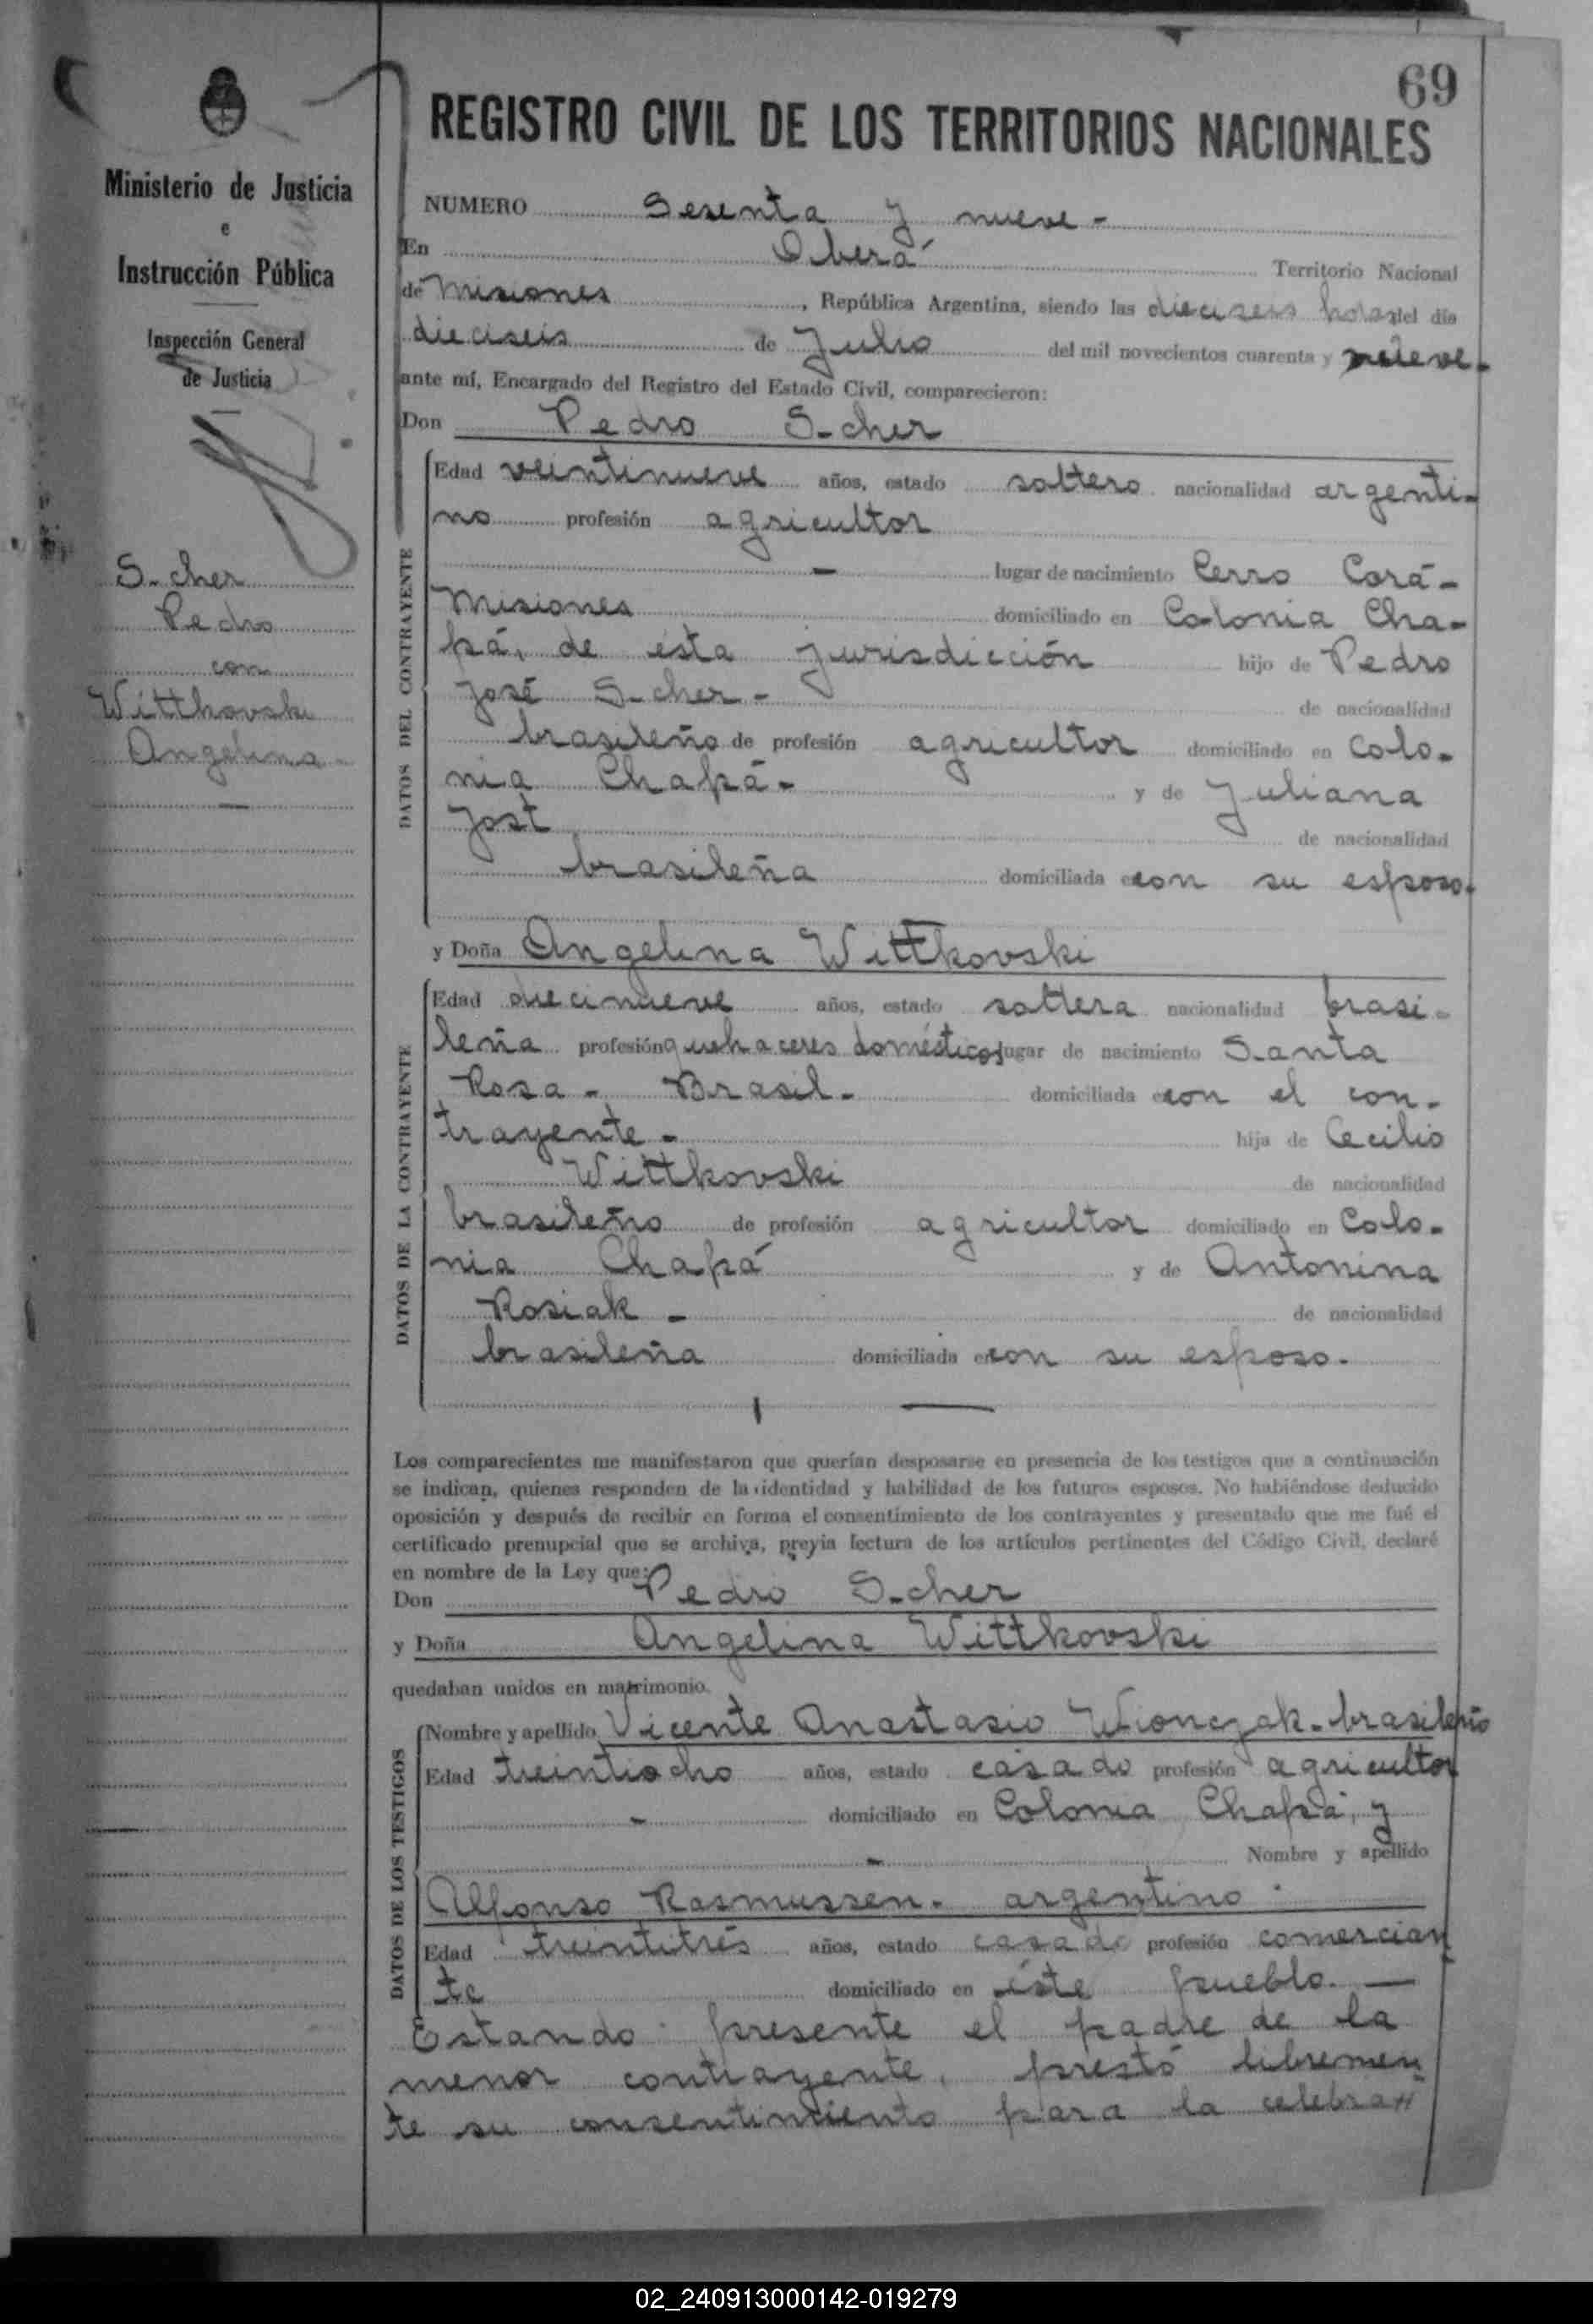 69
REGISTRO CIVIL DE LOS TERRITORIOS NACIONALES
Ministerio de Justicia
e
Instrucción Pública
Inspección General
de Justicia
S-cher
Pedro
con
Wittkovski
Angelina -
NUMERO Sesenta y nueve -
En Oberá Territorio Nacional
de Misiones, República Argentina, siendo las dieciseis horas del día
dieciseis de Julio del mil novecientos cuarenta y nueve -
ante mí, Encargado del Registro del Estado Civil, comparecieron:
Don Pedro S-cher
DATOS DEL CONTRAYENTE
Edad veintinueve años, estado soltero nacionalidad argenti-
no profesión agricultor
- lugar de nacimiento Cerro Corá -
Misiones domiciliado en Colonia Cha-
pá, de ésta jurisdicción hijo de Pedro
José S-cher - de nacionalidad
brasileño de profesión agricultor domiciliado en Colo-
nia Chapá - y de Juliana
Jost de nacionalidad
brasileña domiciliada con su esposo.
y Doña Angelina Wittkovski
DATOS DE LA CONTRAYENTE
Edad diecinueve años, estado soltera nacionalidad brasi-
leña profesión quehaceres domésticos lugar de nacimiento Santa
Rosa - Brasil - domiciliada con el con-
trayente - hija de Cecilio
Wittkovski de nacionalidad
brasileño de profesión agricultor domiciliado en Colo-
nia Chapá y de Antonina
Rosiak - de nacionalidad
brasileña domiciliada con su esposo.
Los comparecientes me manifestaron que querían desposarse en presencia de los testigos que a continuación
se indican, quienes responden de la identidad y habilidad de los futuros esposos. No habiéndose deducido
oposición y después de recibir en forma el consentimiento de los contrayentes y presentado que me fué el
certificado prenupcial que se archiva, previa lectura de los artículos pertinentes del Código Civil, declaré
en nombre de la Ley que:
Don Pedro S-cher
y Doña Angelina Wittkovski
quedaban unidos en matrimonio.
DATOS DE LOS TESTIGOS
Nombre y apellido Vicente Anastasio Wionczak - brasileño
Edad treintiocho años, estado casado profesión agricultor
- domiciliado en Colonia Chapá, y
- Nombre y apellido
Alfonso Rasmussen - argentino
Edad treintitrés años, estado casado profesión comercian
te domiciliado en éste pueblo. —
Estando presente el padre de la
menor contrayente, prestó libremen
te su consentimiento para la celebra"
02_240913000142-019279